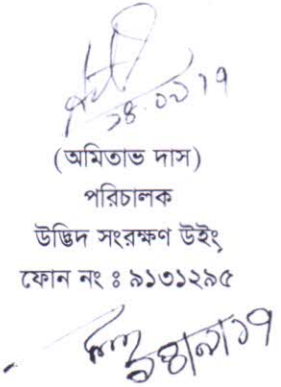 (অমিতাভ দাস)
পরিচালক
উদ্ভিদ সংরক্ষণ উইং
ফোন নং ঃ ৯১৩১২৯৫